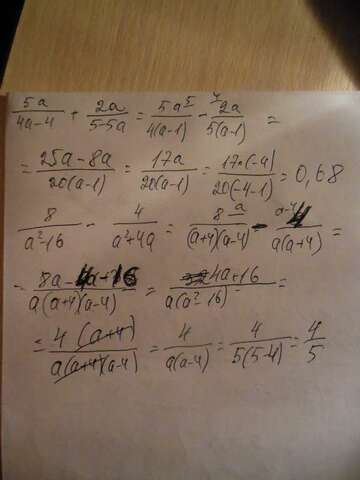 5a/(4a-4) + 2a/(5-5a) = 5a^5/(4(a-1)) - ^4 2a/(5(a-1)) =
= (25a-8a)/(20(a-1)) = 17a/(20(a-1)) = 17·(-4)/(20(-4-1)) = 0,68
8/(a²-16) - 4/(a²+4a) = 8^a/((a+4)(a-4)) - ^(a-4) 4/(a(a+4)) =
= (8a-4a+16)/(a(a+4)(a-4)) = (4a+16)/(a(a²-16)) =
= 4(a+4)/(a(a+4)(a-4)) = 4/(a(a-4)) = 4/(5(5-4)) = 4/5